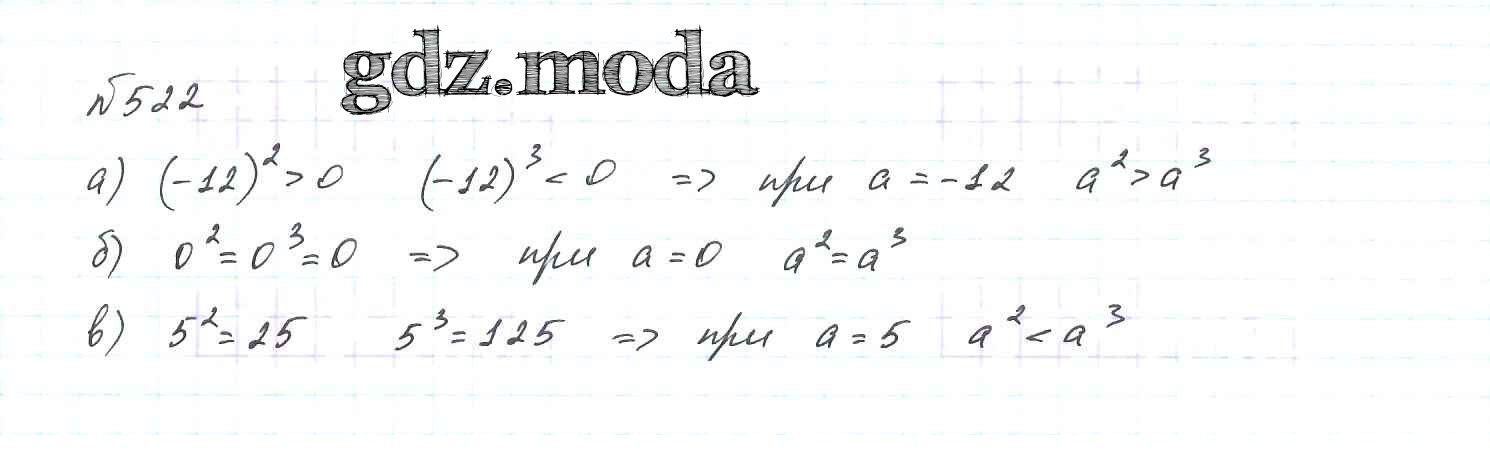 gdz.moda
№522
а) (-12)² > 0 (-12)³ < 0 => при a = -12 a² > a³
б) 0² = 0³ = 0 => при a = 0 a² = a³
в) 5² = 25 5³ = 125 => при a = 5 a² < a³